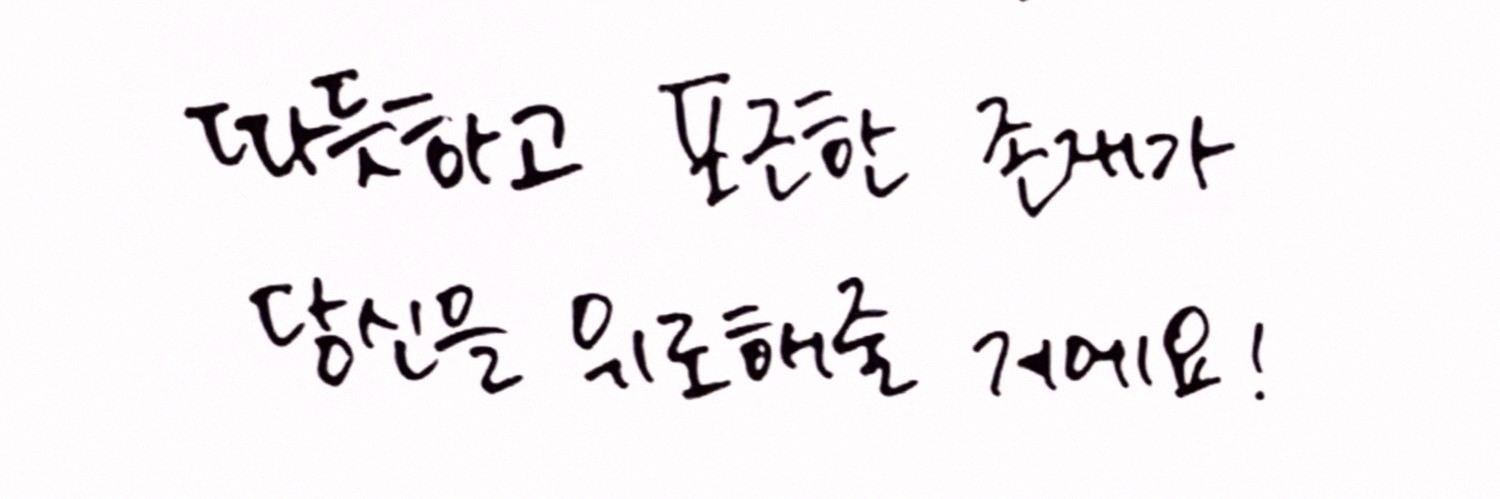 따뜻하고 포근한 존재가
당신을 위로해줄 거에요!